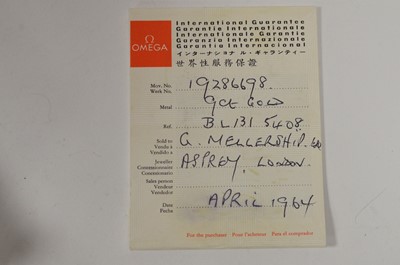 Ω
OMEGA
International Guarantee
Garantie Internationale
Internationale Garantie
Garanzia Internazionale
Garantía Internacional
インターナショナル・ギャランティー
世界性服務保證
Mov. No.
Work No. 19286698.
Metal 9CT GOLD
Ref. BL131 5408.
Sold to
Vendu à
Vendido a G. MELLERSHIP.
Jeweller
Concessionnaire
Concesionario ASPREY, LONDON.
Sales person
Vendeur
Vendedor
Date
Fecha APRIL 1964
For the purchaser Pour l'acheteur Para el comprador